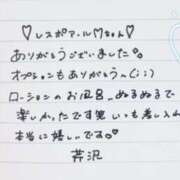 ♡レスポアール♡ちゃん♡
ありがとうございました。
オプションもありがとう〜(;;)
ローションのお風呂、ぬるぬるで
楽しかったです笑 いつも差し入れ
本当に嬉しいです。♡
芹沢